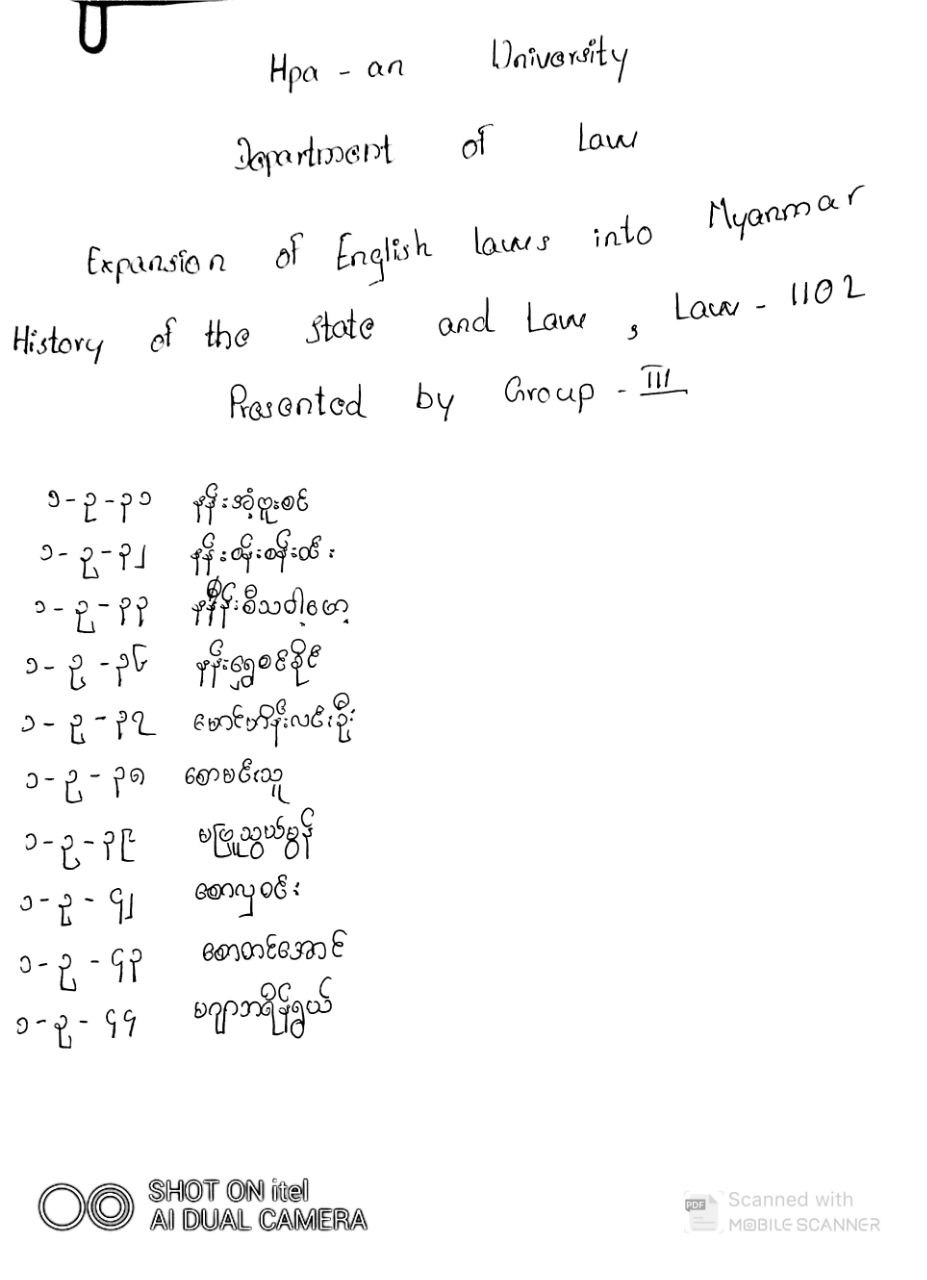 Hpa - an University
Department of Law
Expansion of English laws into Myanmar
History of the state and Law, Law - 1102
Presented by Group - III
၁-ဥ-၃၁ နန်းအံ့ဖူးစင်
၁-ဥ-၃၂ နန်းဝန်းစန်းထီး
၁-ဥ-၃၃ နန်းစီသဝါဖော့
၁-ဥ-၃၆ နန်းရွှေစင်ခိုင်
၁-ဥ-၃၇ မောင်ဟိန်းလင်းဦး
၁-ဥ-၃၈ စောမင်းသူ
၁-ဥ-၃၉ မဖြူသွယ်မွန်
၁-ဥ-၄၂ စောလှဝင်း
၁-ဥ-၄၃ စောတင်အောင်
၁-ဥ-၄၄ မဂျာဘရိန်ရွှယ်
SHOT ON itel
AI DUAL CAMERA
PDF
Scanned with
MOBILE SCANNER